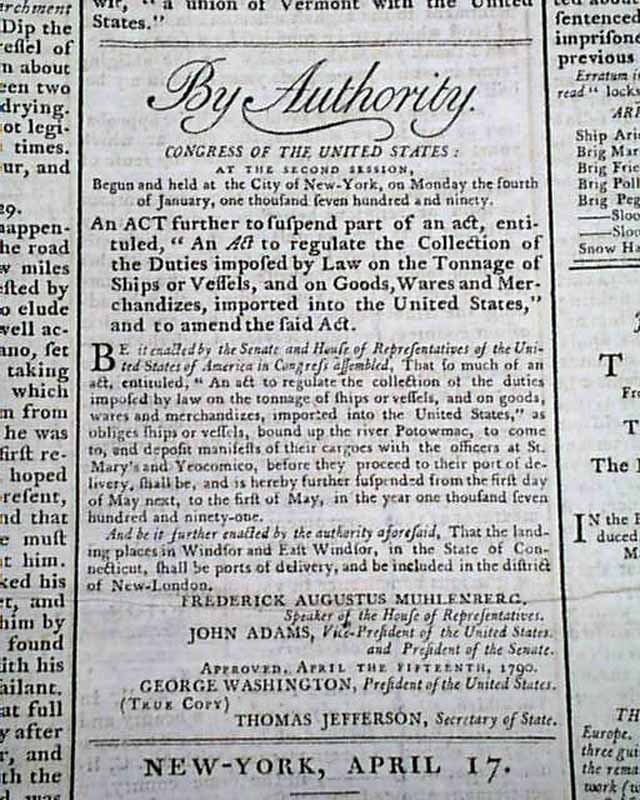 archment
Dip the
essel of
n about
een two
drying.
ot legi-
times.
ur, and
29.
happen-
he road
w miles
ested by
o elude
well ac-
ano, ſet
taking
which
m from
he was
firſt re-
hoped
reſent,
nd that
e muſt
t him.
ked his
et, and
him by
found
ith his
ſailant.
at full
y after
r, and
th the
d was
wit, "a union of Vermont with the United
States."
By Authority.
CONGRESS OF THE UNITED STATES:
AT THE SECOND SESSION,
Begun and held at the City of New-York, on Monday the fourth
of January, one thouſand ſeven hundred and ninety.
An ACT further to ſuſpend part of an act, enti-
tuled, "An Act to regulate the Collection of
the Duties impoſed by Law on the Tonnage of
Ships or Veſſels, and on Goods, Wares and Mer-
chandizes, imported into the United States,"
and to amend the ſaid Act.
BE it enacted by the Senate and Houſe of Repreſentatives of the Uni-
ted States of America in Congreſs aſſembled, That ſo much of an
act, entituled, "An act to regulate the collection of the duties
impoſed by law on the tonnage of ſhips or veſſels, and on goods,
wares and merchandizes, imported into the United States," as
obliges ſhips or veſſels, bound up the river Potowmac, to come
to, and depoſit manifeſts of their cargoes with the officers at St.
Mary's and Yeocomico, before they proceed to their port of de-
livery, ſhall be, and is hereby further ſuſpended from the firſt day
of May next, to the firſt of May, in the year one thouſand ſeven
hundred and ninety-one.
And be it further enacted by the authority aforeſaid, That the land-
ing places in Windſor and Eaſt Windſor, in the State of Con-
necticut, ſhall be ports of delivery, and be included in the diſtrict
of New-London.
FREDERICK AUGUSTUS MUHLENBERG,
Speaker of the Houſe of Repreſentatives.
JOHN ADAMS, Vice-Preſident of the United States,
and Preſident of the Senate.
APPROVED, APRIL THE FIFTEENTH, 1790.
GEORGE WASHINGTON, Preſident of the United States.
(TRUE COPY)
THOMAS JEFFERSON, Secretary of State.
NEW-YORK, APRIL 17.
ſentenced
impriſone
previous
Erratum i
read "locks
ARI
Ship Ari
Brig Mar
Brig Frie
Brig Poll
Brig Peg
—Sloo
—Slou
Snow Ha
T
Fro
T
The
IN the
duced
M
TH
Europe.
three gui
the rema
work (